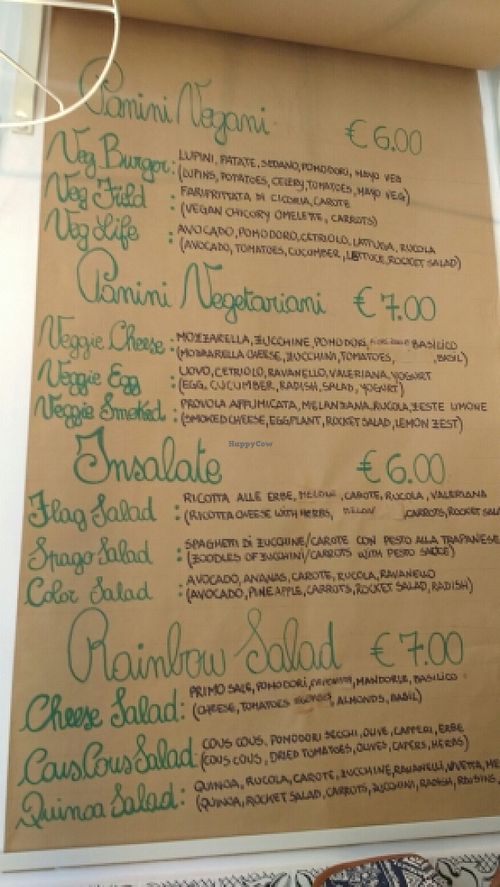 Panini Vegani € 6.00
Veg Burger: LUPINI, PATATE, SEDANO, POMODORI, MAYO VEG
(LUPINS, POTATOES, CELERY, TOMATOES, MAYO VEG)
Veg Field : FARIFRITTATA DI CICORIA, CAROTE
(VEGAN CHICORY OMELETTE, CARROTS)
Veg Life : AVOCADO, POMODORO, CETRIOLO, LATTUGA, RUCOLA
(AVOCADO, TOMATOES, CUCUMBER, LETTUCE, ROCKET SALAD)
Panini Vegetariani € 7.00
Veggie Cheese : MOZZARELLA, ZUCCHINE, POMODORI, BASILICO
(MOZZARELLA CHEESE, ZUCCHINI, TOMATOES, BASIL)
Veggie Egg : UOVO, CETRIOLO, RAVANELLO, VALERIANA, YOGURT
(EGG, CUCUMBER, RADISH, SALAD, YOGURT)
Veggie Smoked : PROVOLA AFFUMICATA, MELANZANA, RUCOLA, ZESTE LIMONE
(SMOKED CHEESE, EGGPLANT, ROCKET SALAD, LEMON ZEST)
HappyCow
Insalate € 6.00
Flag Salad : RICOTTA ALLE ERBE, MELONE, CAROTE, RUCOLA, VALERIANA
(RICOTTA CHEESE WITH HERBS, MELON, CARROTS, ROCKET SALA
Spago Salad : SPAGHETTI DI ZUCCHINE/CAROTE CON PESTO ALLA TRAPANESE
(ZOODLES OF ZUCCHINI/CARROTS WITH PESTO SAUCE)
Color Salad : AVOCADO, ANANAS, CAROTE, RUCOLA, RAVANELLO
(AVOCADO, PINEAPPLE, CARROTS, ROCKET SALAD, RADISH)
Rainbow Salad € 7.00
Cheese Salad: PRIMO SALE, POMODORI, MANDORLE, BASILICO
(CHEESE, TOMATOES, ALMONDS, BASIL)
CousCous Salad: COUS COUS, POMODORI SECCHI, OLIVE, CAPPERI, ERBE
(COUS COUS, DRIED TOMATOES, OLIVES, CAPERS, HERBS)
Quinoa Salad: QUINOA, RUCOLA, CAROTE, ZUCCHINE, RAVANELLI, UVETTA,
(QUINOA, ROCKET SALAD, CARROTS, ZUCCHINI, RADISH,